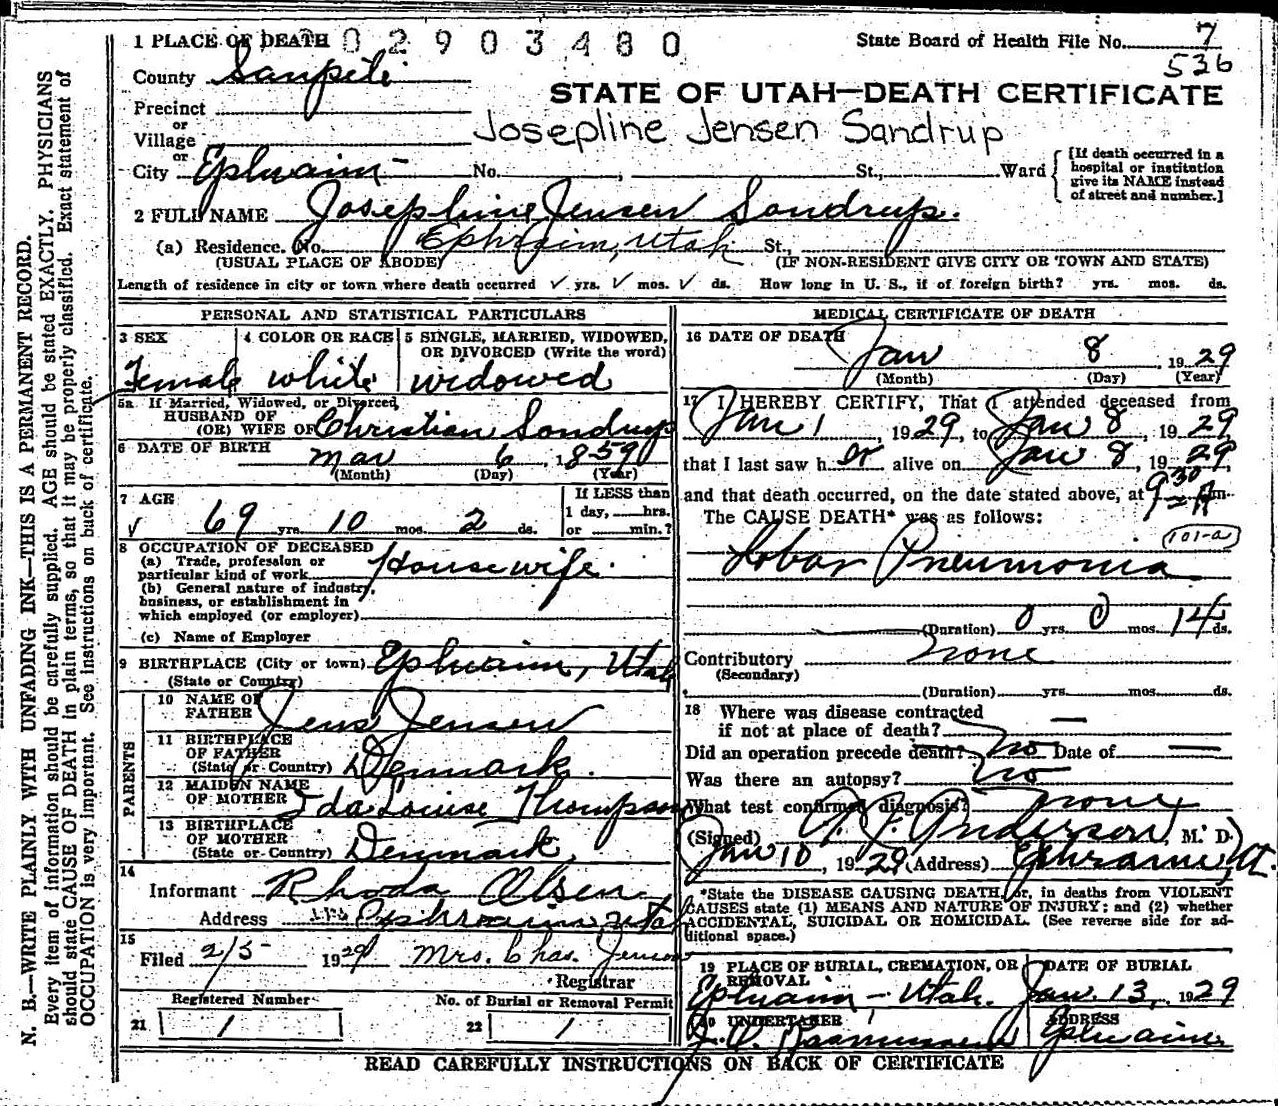 1 PLACE OF DEATH 0 2 9 0 3 4 8 0 State Board of Health File No. 7
536
County Sanpete
STATE OF UTAH—DEATH CERTIFICATE
Precinct
or
Village
Josepline Jensen Sandrup
or
City Ephraim No. , St., Ward
[If death occurred in a hospital or institution give its NAME instead of street and number.]
2 FULL NAME Josephine Jensen Sondrup.
(a) Residence. No. Ephraim, Utah St.,
(USUAL PLACE OF ABODE) (IF NON-RESIDENT GIVE CITY OR TOWN AND STATE)
Length of residence in city or town where death occurred ✓ yrs. ✓ mos. ✓ ds. How long in U. S., if of foreign birth? yrs. mos. ds.
PERSONAL AND STATISTICAL PARTICULARS
3 SEX 4 COLOR OR RACE 5 SINGLE, MARRIED, WIDOWED,
OR DIVORCED (Write the word)
Female white widowed
5a If Married, Widowed, or Divorced,
HUSBAND OF
(OR) WIFE OF Christian Sondrup
6 DATE OF BIRTH Mar 6, 1859
(Month) (Day) (Year)
7 AGE If LESS than
1 day, hrs.
✓ 69 yrs. 10 mos. 2 ds. or min.?
8 OCCUPATION OF DECEASED
(a) Trade, profession or
particular kind of work Housewife.
(b) General nature of industry,
business, or establishment in
which employed (or employer)
(c) Name of Employer
9 BIRTHPLACE (City or town) Ephraim, Utah
(State or Country)
PARENTS
10 NAME OF
FATHER Jens Jensen
11 BIRTHPLACE
OF FATHER
(State or Country) Denmark.
12 MAIDEN NAME
OF MOTHER Ida Louise Thompson
13 BIRTHPLACE
OF MOTHER
(State or Country) Denmark,
14
Informant Rhoda Olsen
Address Ephraim, Utah
15
Filed 2/5 1929 Mrs. Chas. Jensen
Registrar
Registered Number No. of Burial or Removal Permit
21 1 22 1
MEDICAL CERTIFICATE OF DEATH
16 DATE OF DEATH
Jan 8, 1929
(Month) (Day) (Year)
17 I HEREBY CERTIFY, That I attended deceased from
Jan 1, 1929, to Jan 8, 1929,
that I last saw her alive on Jan 8, 1929,
and that death occurred, on the date stated above, at 9 30 A m.
The CAUSE DEATH* was as follows:
101-a
Lobar Pneumonia
(Duration) 0 yrs. 0 mos. 14 ds.
Contributory None
(Secondary)
(Duration) yrs. mos. ds.
18 Where was disease contracted
if not at place of death? —
Did an operation precede death? No Date of —
Was there an autopsy? No
What test confirmed diagnosis? None
(Signed) Anderson, M. D.
Jan 10, 1929 (Address) Ephraim, Ut.
*State the DISEASE CAUSING DEATH, or, in deaths from VIOLENT
CAUSES state (1) MEANS AND NATURE OF INJURY; and (2) whether
ACCIDENTAL, SUICIDAL OR HOMICIDAL. (See reverse side for ad-
ditional space.)
19 PLACE OF BURIAL, CREMATION, OR DATE OF BURIAL
REMOVAL
Ephraim - Utah. Jan. 13, 1929
20 UNDERTAKER ADDRESS
Rasmussen Ephraim
READ CAREFULLY INSTRUCTIONS ON BACK OF CERTIFICATE
N. B.—WRITE PLAINLY WITH UNFADING INK—THIS IS A PERMANENT RECORD.
Every item of information should be carefully supplied. AGE should be stated EXACTLY. PHYSICIANS
should state CAUSE OF DEATH in plain terms, so that it may be properly classified. Exact statement of
OCCUPATION is very important. See instructions on back of certificate.